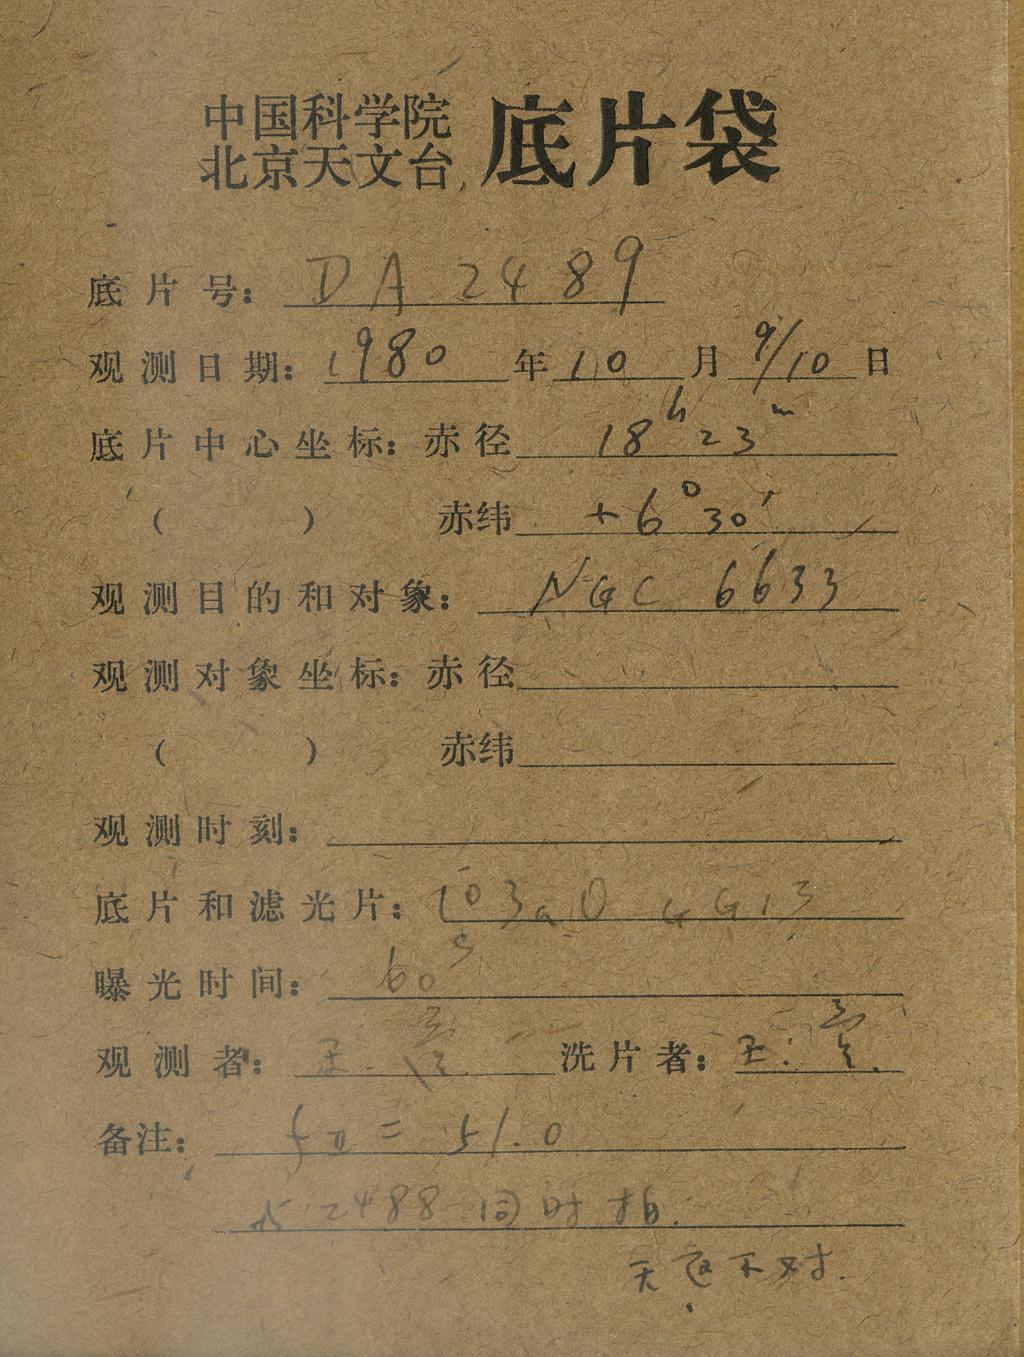 中国科学院
北京天文台
底片袋
底片号: DA 2489
观测日期: 1980 年 10 月 9/10 日
底片中心坐标: 赤径 18ʰ23ᵐ
( ) 赤纬 +6°30′
观测目的和对象: NGC 6633
观测对象坐标: 赤径
( ) 赤纬
观测时刻:
底片和滤光片: 103aO GG13
曝光时间: 60ˢ
观测者: 王. 洗片者: 王.
备注: fⅡ= 51.0
与2488同时拍.
天 不对.